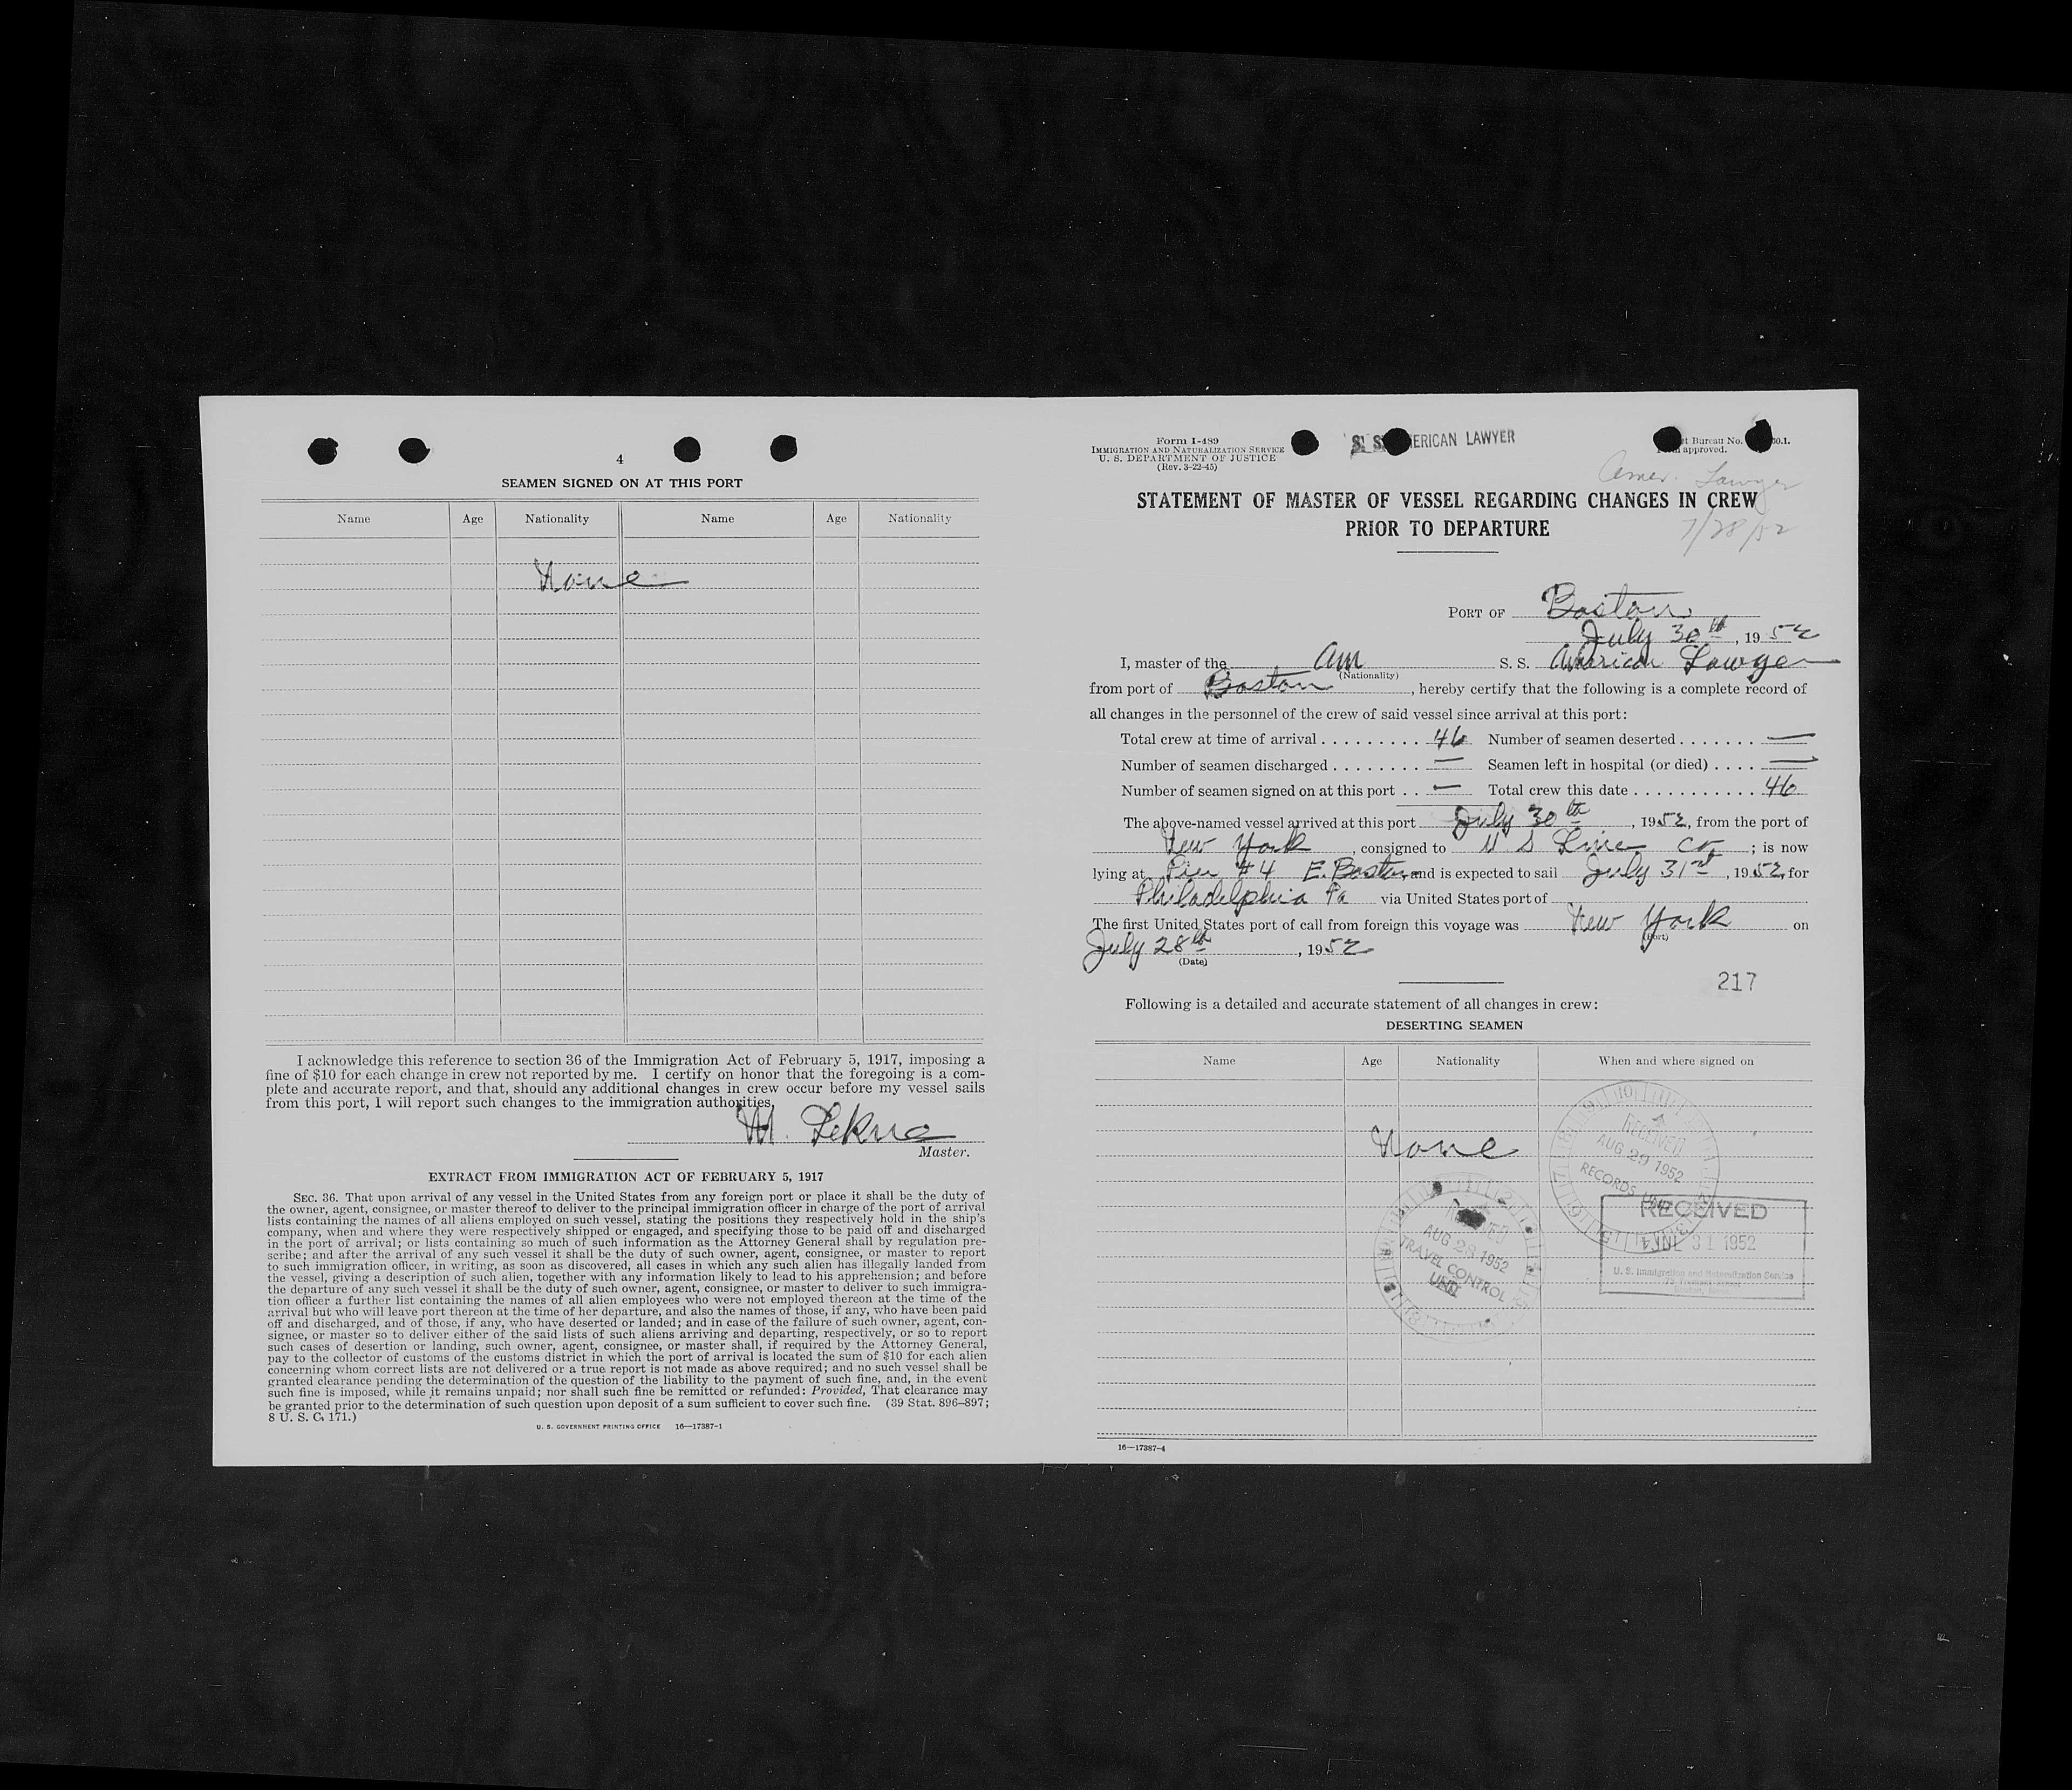 4
SEAMEN SIGNED ON AT THIS PORT
Name Age Nationality Name Age Nationality
None
I acknowledge this reference to section 36 of the Immigration Act of February 5, 1917, imposing a
fine of $10 for each change in crew not reported by me. I certify on honor that the foregoing is a com-
plete and accurate report, and that, should any additional changes in crew occur before my vessel sails
from this port, I will report such changes to the immigration authorities.
M.
Master.
EXTRACT FROM IMMIGRATION ACT OF FEBRUARY 5, 1917
SEC. 36. That upon arrival of any vessel in the United States from any foreign port or place it shall be the duty of
the owner, agent, consignee, or master thereof to deliver to the principal immigration officer in charge of the port of arrival
lists containing the names of all aliens employed on such vessel, stating the positions they respectively hold in the ship's
company, when and where they were respectively shipped or engaged, and specifying those to be paid off and discharged
in the port of arrival; or lists containing so much of such information as the Attorney General shall by regulation pre-
scribe; and after the arrival of any such vessel it shall be the duty of such owner, agent, consignee, or master to report
to such immigration officer, in writing, as soon as discovered, all cases in which any such alien has illegally landed from
the vessel, giving a description of such alien, together with any information likely to lead to his apprehension; and before
the departure of any such vessel it shall be the duty of such owner, agent, consignee, or master to deliver to such immigra-
tion officer a further list containing the names of all alien employees who were not employed thereon at the time of the
arrival but who will leave port thereon at the time of her departure, and also the names of those, if any, who have been paid
off and discharged, and of those, if any, who have deserted or landed; and in case of the failure of such owner, agent, con-
signee, or master so to deliver either of the said lists of such aliens arriving and departing, respectively, or so to report
such cases of desertion or landing, such owner, agent, consignee, or master shall, if required by the Attorney General,
pay to the collector of customs of the customs district in which the port of arrival is located the sum of $10 for each alien
concerning whom correct lists are not delivered or a true report is not made as above required; and no such vessel shall be
granted clearance pending the determination of the question of the liability to the payment of such fine, and, in the event
such fine is imposed, while it remains unpaid; nor shall such fine be remitted or refunded: Provided, That clearance may
be granted prior to the determination of such question upon deposit of a sum sufficient to cover such fine. (39 Stat. 896–897;
8 U. S. C. 171.)
U. S. GOVERNMENT PRINTING OFFICE 16—17387-1
Form I-489
IMMIGRATION AND NATURALIZATION SERVICE
U. S. DEPARTMENT OF JUSTICE
(Rev. 3-22-45)
S. S. ERICAN LAWYER
Bureau No.
approved.
Amer. Lawyer
7/28/52
STATEMENT OF MASTER OF VESSEL REGARDING CHANGES IN CREW
PRIOR TO DEPARTURE
PORT OF Boston
July 30th, 1952
I, master of the Am S. S. American Lawyer
(Nationality)
from port of Boston, hereby certify that the following is a complete record of
all changes in the personnel of the crew of said vessel since arrival at this port:
Total crew at time of arrival ......... 46 Number of seamen deserted ....... —
Number of seamen discharged ........ — Seamen left in hospital (or died) .... —
Number of seamen signed on at this port .. — Total crew this date ........... 46
The above-named vessel arrived at this port July 30th, 1952, from the port of
New York, consigned to U S Line Co; is now
lying at Pier #4 E. Boston and is expected to sail July 31st, 1952, for
Philadelphia Pa via United States port of
The first United States port of call from foreign this voyage was New York on
(Port)
July 28th, 1952
(Date)
217
Following is a detailed and accurate statement of all changes in crew:
DESERTING SEAMEN
Name Age Nationality When and where signed on
None
RECEIVED
AUG 29 1952
RECORDS UNIT
RECEIVED
AUG 28 1952
TRAVEL CONTROL
UNIT
RECEIVED
JUL 31 1952
U. S. Immigration and Naturalization Service
16—17387-4